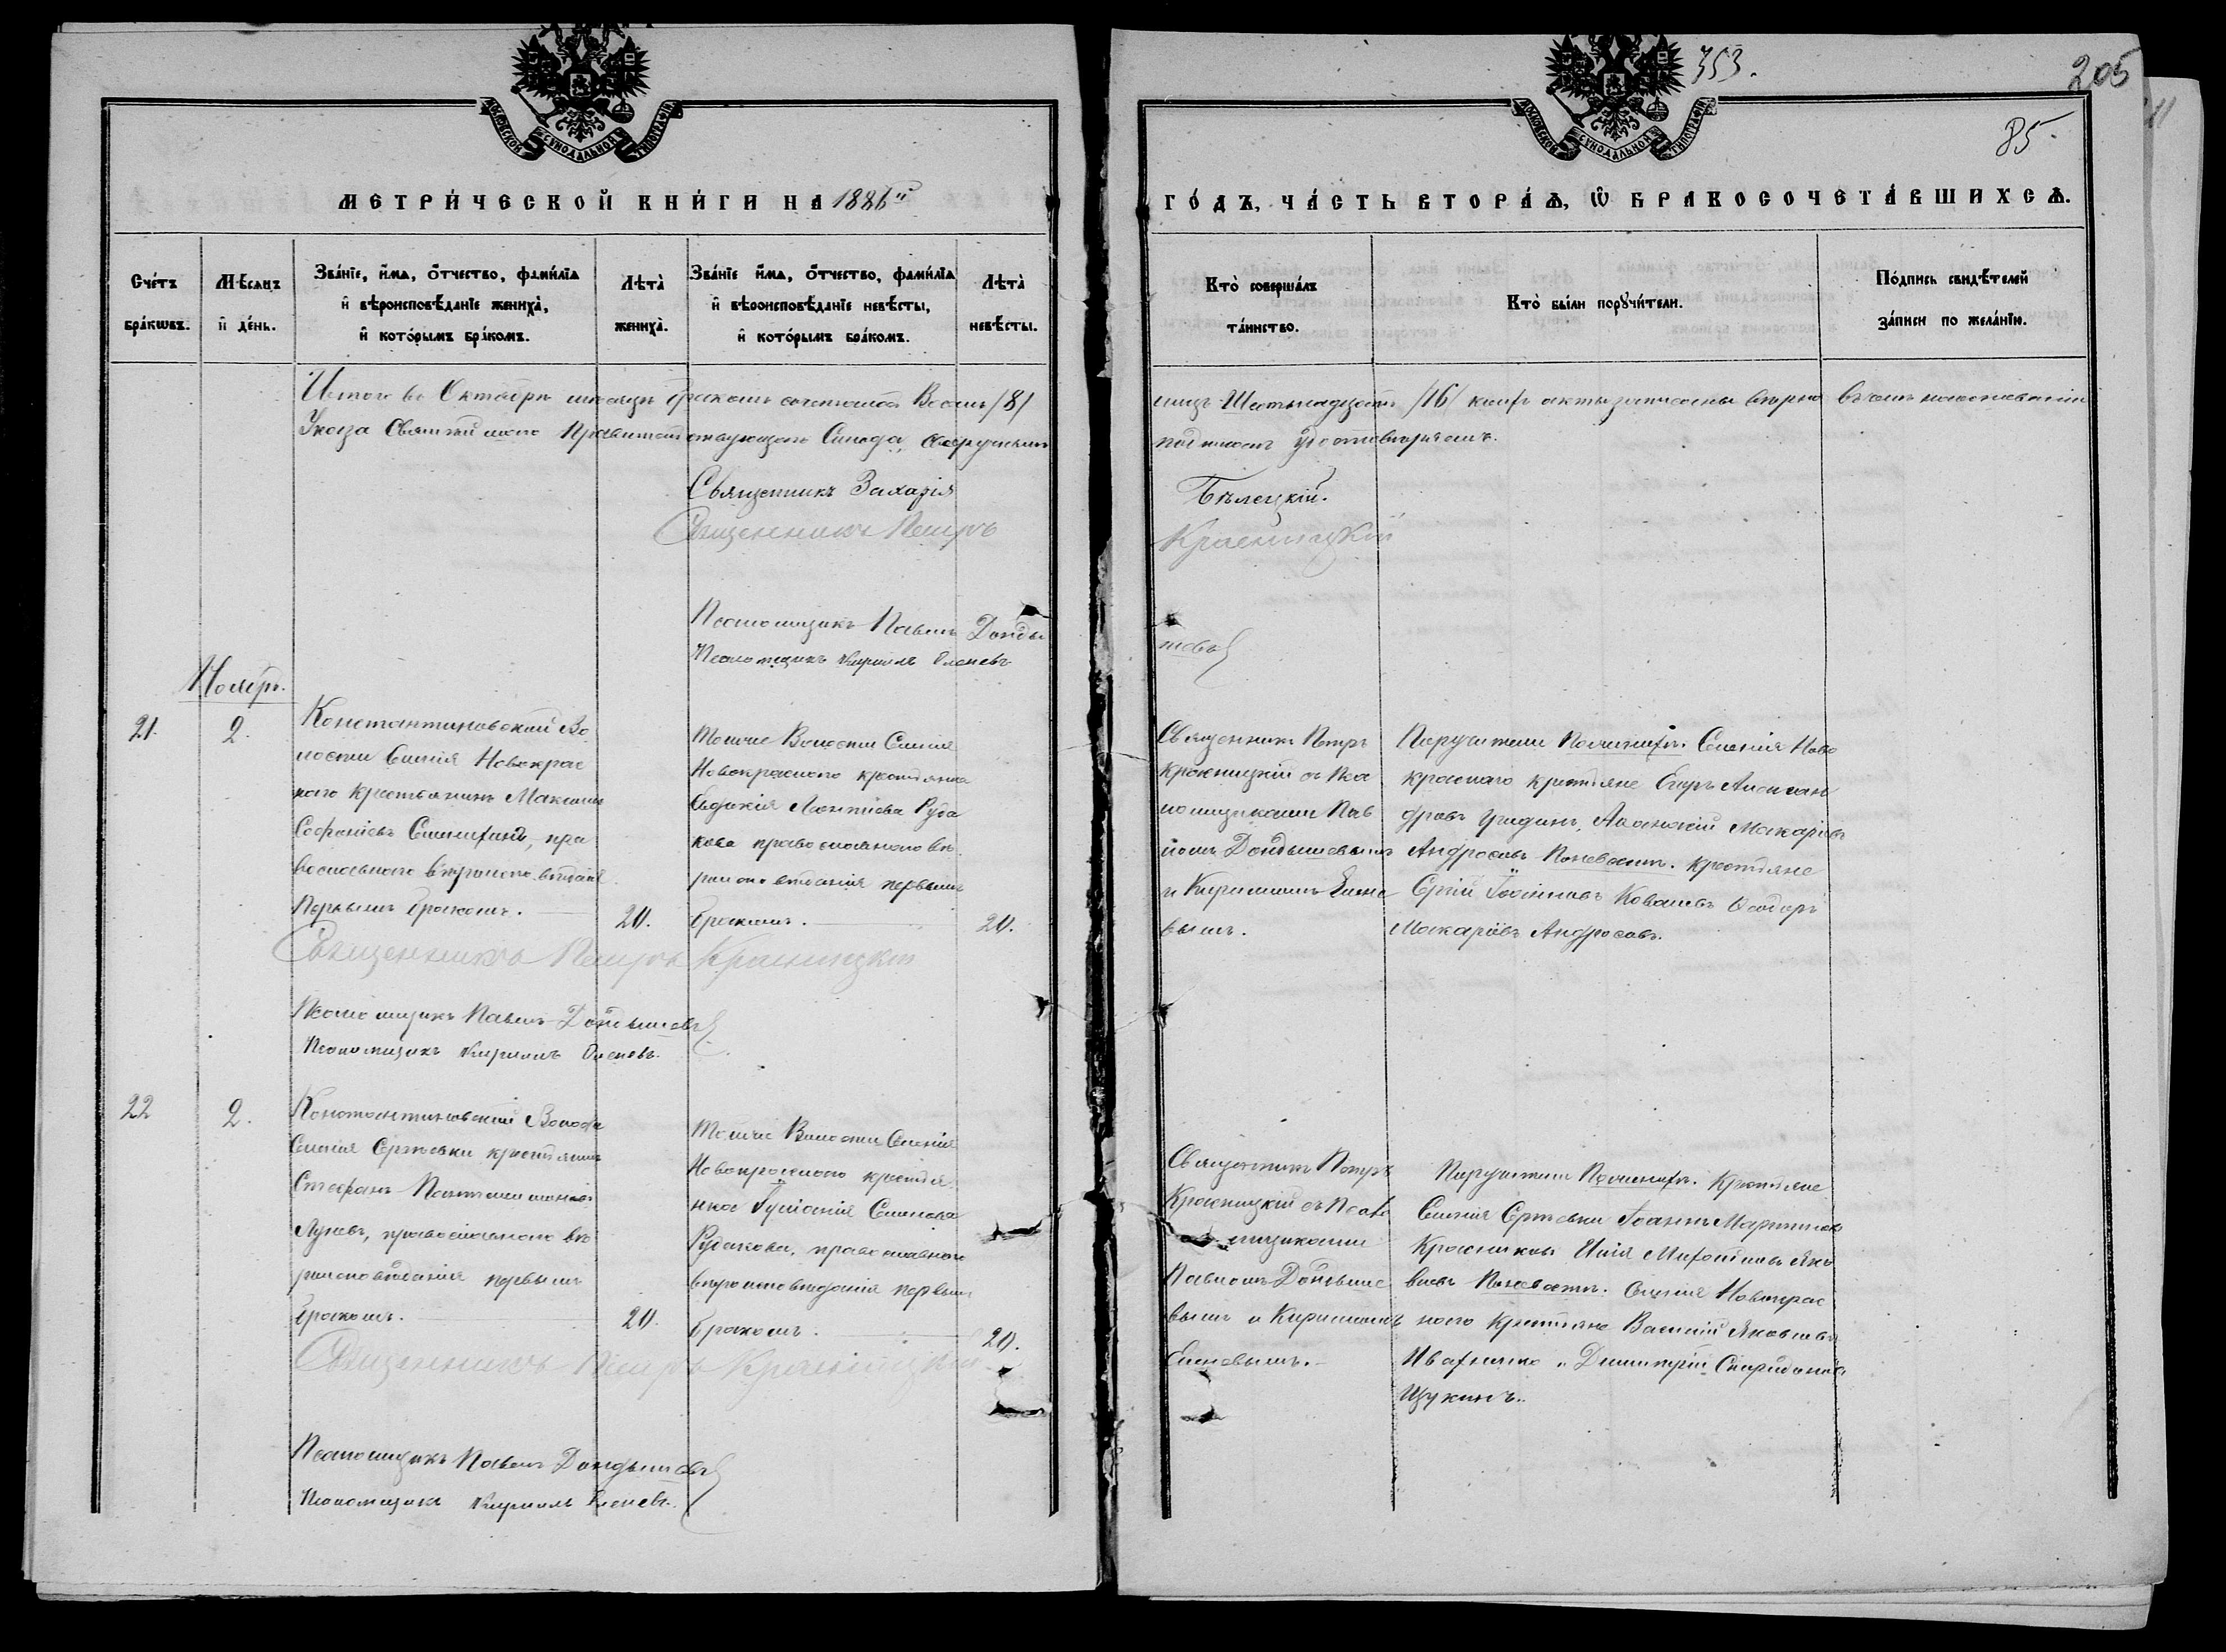 353.
205
85
МОСКОВСКОЙ СУНОДАЛЬНОЙ ТИПОГРАФІИ
МОСКОВСКОЙ СУНОДАЛЬНОЙ ТИПОГРАФІИ
МЕТРИ́ЧЕСКОЙ КНИ́ГИ НА 1886й
ГО́ДЪ, ЧА́СТЬ ВТОРА́Ѧ, Ѽ БРАКОСОЧЕТА́ВШИХСѦ.
Счетъ бракѡвъ.
Мѣсяцъ и день.
Званіе, имѧ, отчество, фамиліа
и вѣроисповѣданіе жениха,
и которымъ бракомъ.
Лѣта жениха.
Званіе имѧ, отчество, фамиліа
и вѣроисповѣданіе невѣсты,
и которымъ бракомъ.
Лѣта невѣсты.
Кто совершалъ таинство.
Кто были поручители.
Подпись свидѣтелей
записи по желанію.
Итого во Октябрѣ мѣсяцѣ бракомъ сочеталось Восемь /8/
лицъ Шестьнадцать /16/ акты записаны вѣрно въ томъ на основаніи
Указа Святѣйшаго Правительствующаго Синода,
подписомъ удостовѣряемъ.
Священникъ Захарія Бѣлецкій.
Священникъ Петръ Красницкій
Псаломщикъ Павелъ Дондышевъ
Псаломщикъ Кириллъ Еленевъ
Ноябрь.
21.
2.
Константиновской Во
лости Селенія Новокрас
наго Крестьянинъ Максимъ
Софоніевъ пра
вославнаго вѣроисповѣданія
Первымъ бракомъ.
20.
Тойже Волости Селенія
Новокраснаго крестьянка
Евдокія Леонтіева Руда
кова православнаго вѣ
роисповѣданія первымъ
бракомъ.
20.
Священникъ Петръ
Красницкій съ Пса
ломщиками Пав
ломъ Дондышевымъ
и Кирилломъ Елене
вымъ.
Поручители По женихѣ. Селенія Ново
краснаго крестьяне Егоръ Александ
ровъ Аѳанасій Макаріевъ
Андросовъ По невѣстѣ. крестьяне
Сергій Іоанновъ Ковалевъ Ѳеодоръ
Макаріевъ Андросовъ.
Священникъ Петръ Красницкій
Псаломщикъ Павелъ Дондышевъ
Псаломщикъ Кириллъ Еленевъ.
22
2.
Константиновской Волости
Селенія Сергѣевки крестьянинъ
Стефанъ Пантелеимоновъ
Луневъ, православнаго вѣ
роисповѣданія первымъ
бракомъ.
20.
Тойже Волости Селенія
Новокраснаго крестья
нка Іуліанія Семенова
Рудакова, православнаго
вѣроисповѣданія первымъ
бракомъ.
20.
Священникъ Петръ
Красницкій съ Псало
мщиками
Павломъ Дондыше
вымъ и Кирилломъ
Еленевымъ.
Поручители По женихѣ. Крестьяне
Селенія Сергѣевки Іоаннъ Мартиновъ
Красниковъ Илія Яко
влевъ По невѣстѣ. Селенія Новокрас
наго Крестьяне Василій Яковлевъ
Ивахненко и Димитрій Спиридоновъ
Щукинъ.
Священникъ Петръ Красницкій
Псаломщикъ Павелъ Дондышевъ
Псаломщикъ Кириллъ Еленевъ.